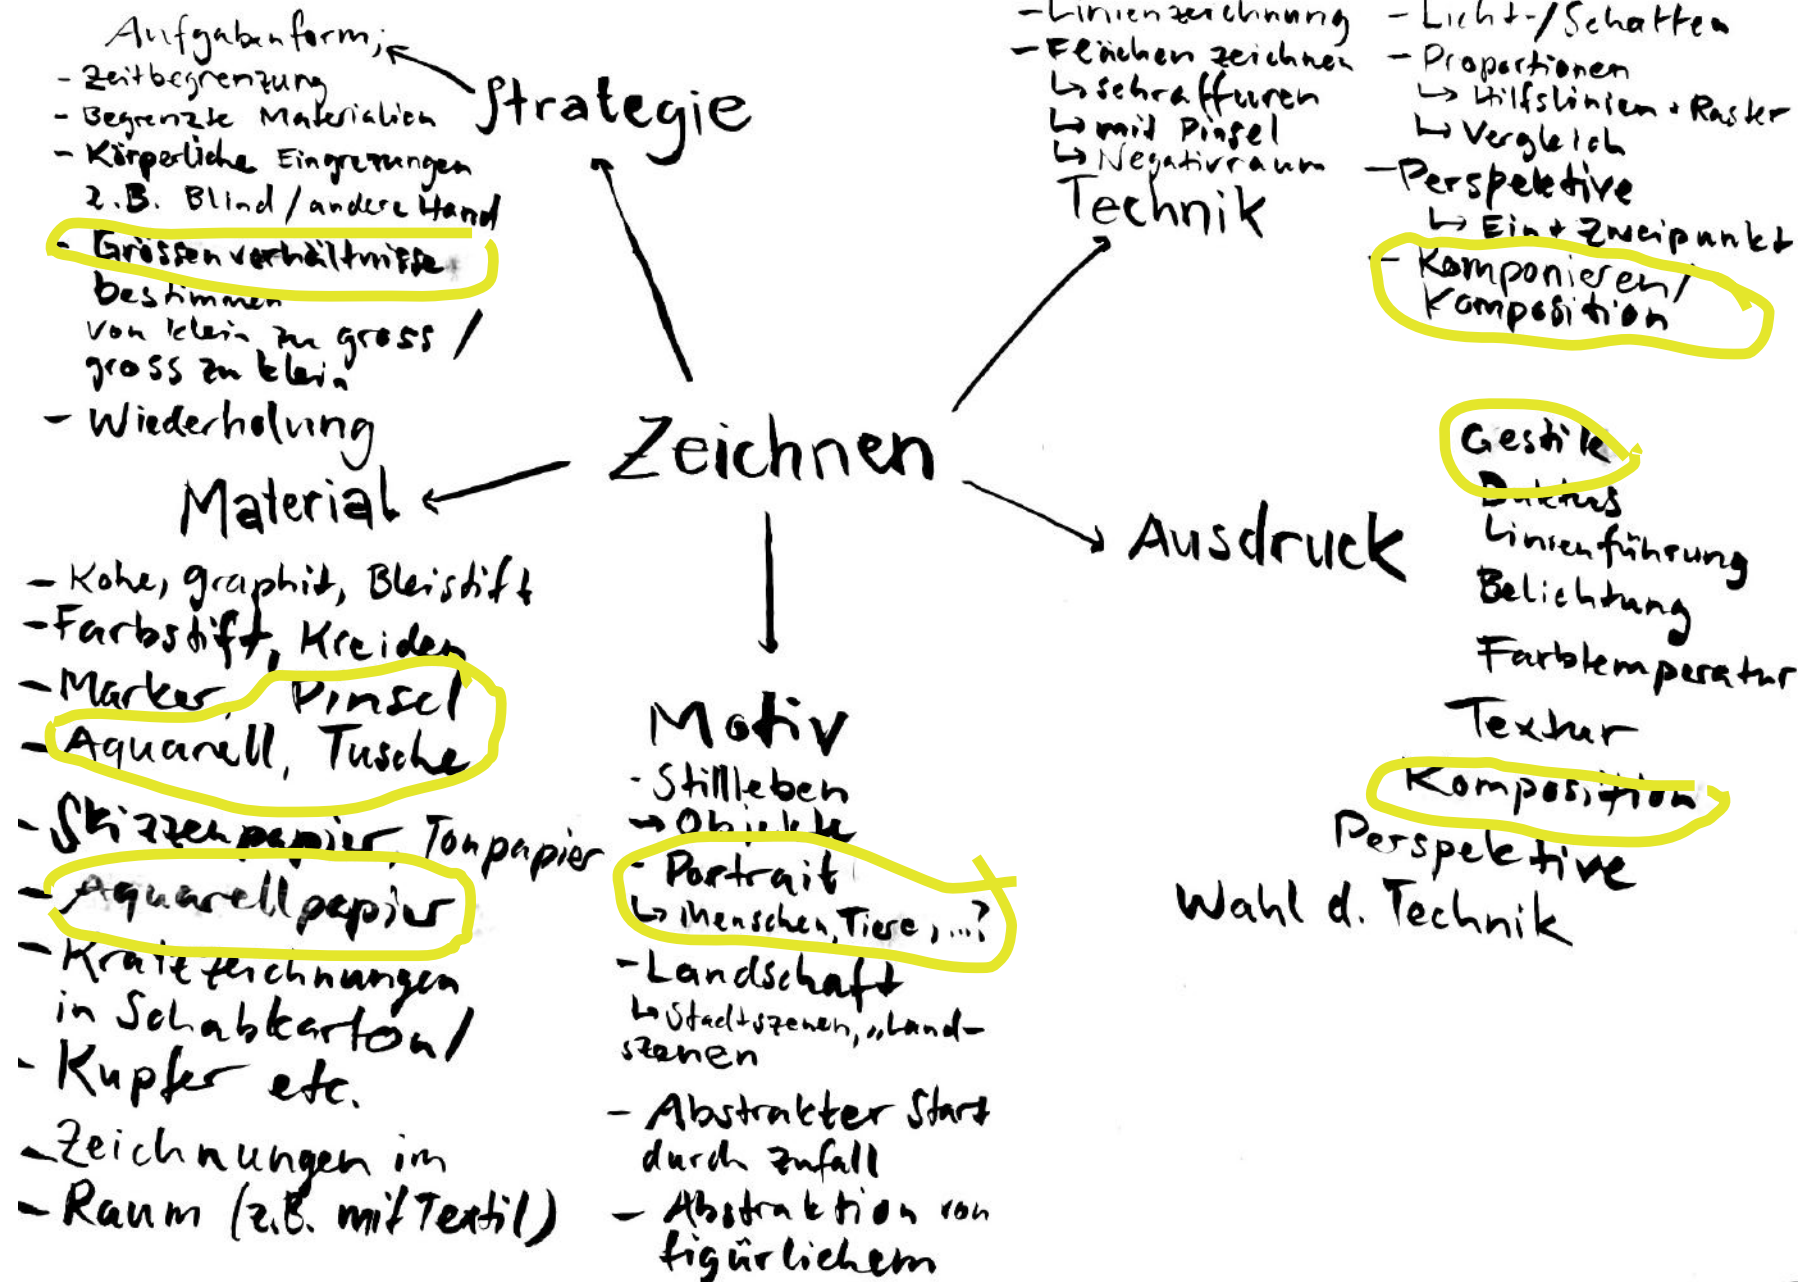 Aufgabenform;
- Zeitbegrenzung
- Begrenzte Materialien
- Körperliche Eingrenzungen
z.B. Blind / andere Hand
- Grössenverhältnisse
bestimmen
von klein zu gross /
gross zu klein
- Wiederholung
Strategie
- Linienzeichnung
- Flächen zeichnen
↳ schraffuren
↳ mit Pinsel
↳ Negativraum
Technik
- Licht-/Schatten
- Proportionen
↳ Hilfslinien + Raster
↳ Vergleich
- Perspektive
↳ Ein + Zweipunkt
- Komponieren/
Komposition
Zeichnen
Material
- Kohe, graphit, Bleistift
- Farbstift, Kreiden
- Marker, Pinsel
- Aquarell, Tusche
- Skizzenpapier, Tonpapier
- Aquarellpapier
- Kratzzeichnungen
in Schabkarton/
- Kupfer etc.
- Zeichnungen im
- Raum (z.B. mit Textil)
Motiv
- Stillleben
→ Objekte
- Portrait
↳ Menschen, Tiere, ...?
- Landschaft
↳ Stadtszenen, „Land-
szenen
- Abstrakter Start
durch Zufall
- Abstraktion von
figürlichem
Ausdruck
Gestik
Duktus
Linienführung
Belichtung
Farbtemperatur
Textur
Komposition
Perspektive
Wahl d. Technik